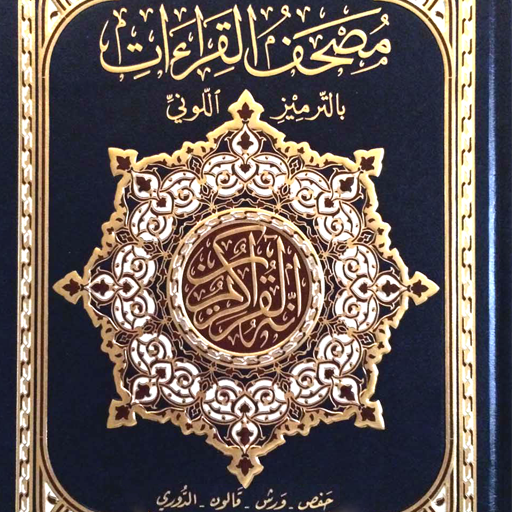 مُصْحَفُ القِرَاءَاتِ
بِالتَّرمِيْزِ اللَّونِيِّ
إنه لقرآن كريم
حَفص - وَرش - قَالون - الدّوري